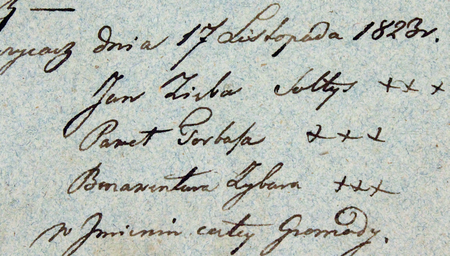 dnia 17 Listopada 1823r.
Jan Zięba Sołtys +++
Paweł Gorbaſa +++
Bonawentura Zybura +++
w Jmieniu całey Gromady.